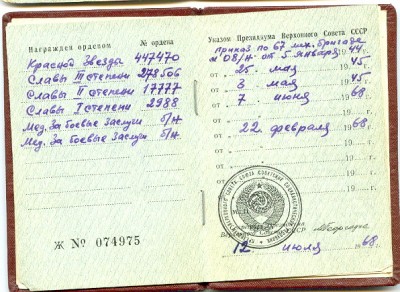 Награжден орденом
№ ордена
Красной Звезды 447470
Славы III степени 278506
Славы II степени 17777
Славы I степени 2988
Мед. За боевые заслуги б/н
Мед. За боевые заслуги б/н
Ж № 074975
Указом Президиума Верховного Совета СССР
приказ по 67 мех. бригаде
№ 08/н от 5 января 44
от 25 мая 1945 г.
от 3 мая 1945 г.
от 7 июня 1968 г.
от 194 г.
от 22 февраля 1968 г.
от
от
СССР
12 июля 1968 г.